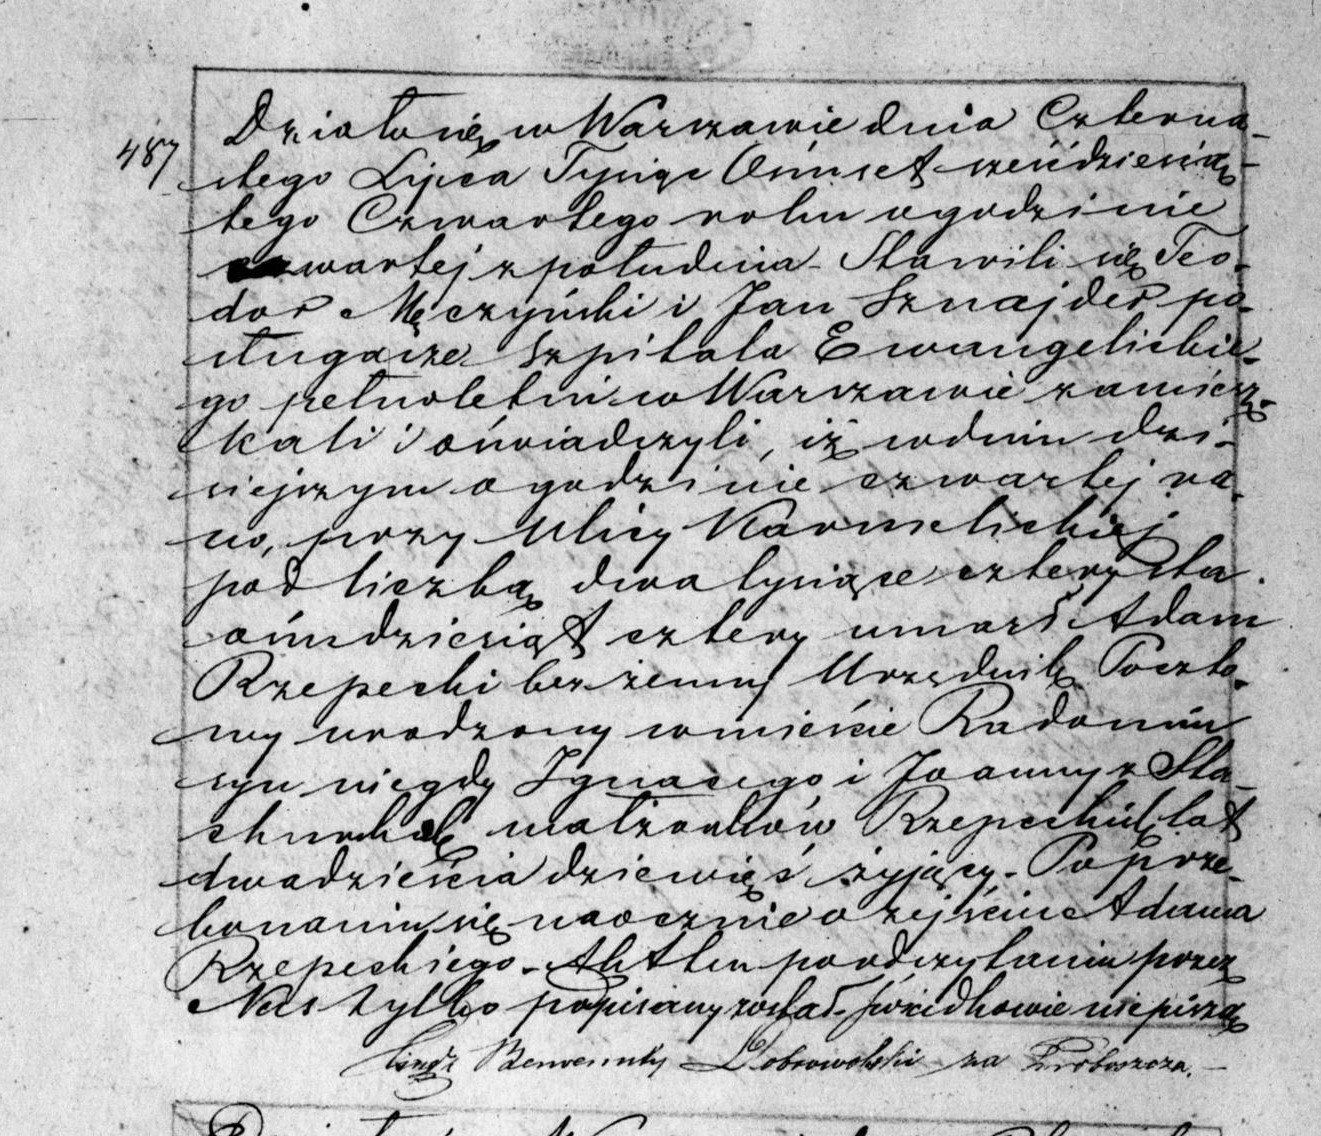 487 Działo się w Warszawie dnia Czterna-
stego Lipca Tysiąc Ośmset sześćdziesią-
tego Czwartego roku o godzinie
czwartej z południa – Stawili się Teo-
dor Męczyński i Jan Sznajder po-
sługacze Szpitala Ewangelickie-
go pełnoletni w Warszawie zamiesz-
kali i oświadczyli, iż w dniu dzi-
siejszym o godzinie czwartej ra-
no, przy Ulicy Karmelickiej
pod liczbą dwa tysiące czterysta
ośmdziesiąt cztery umarł Adam
Rzepecki bezżenny Urzędnik Poczto-
wy urodzony w mieście Radomiu
syn niegdy Ignacego i Joanny z Sta-
małżonków Rzepeckich lat
dwadzieścia dziewięć żyjący. – Po prze-
konaniu się naocznie o zejściu Adama
Rzepeckiego – Akt ten po odczytaniu przez
Nas tylko podpisany został świadkowie nie piszą
Ksiądz Benwenuty Dobrowolski za Proboszcza. –